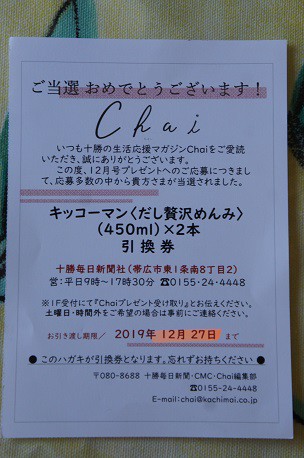 ご当選 おめでとうございます！
Chai
いつも十勝の生活応援マガジンChaiをご愛読
いただき、誠にありがとうございます。
この度、12月号プレゼントへのご応募につきまし
て、応募多数の中から貴方さまが当選されました。
キッコーマン〈だし贅沢めんみ〉
(450ml)×2本
引換券
十勝毎日新聞社(帯広市東1条南8丁目2)
営:平日9時〜17時30分 ☎0155-24-4448
※1F受付にて『Chaiプレゼント受け取り』とお伝えください。
土曜日・時間外をご希望の場合は事前にご連絡ください。
お引き渡し期限／ 2019年 12月 27日 まで
● このハガキが引換券となります。忘れずお持ちください ●
〒080-8688 十勝毎日新聞・CMC・Chai編集部
☎0155-24-4448
E-mail:chai@kachimai.co.jp